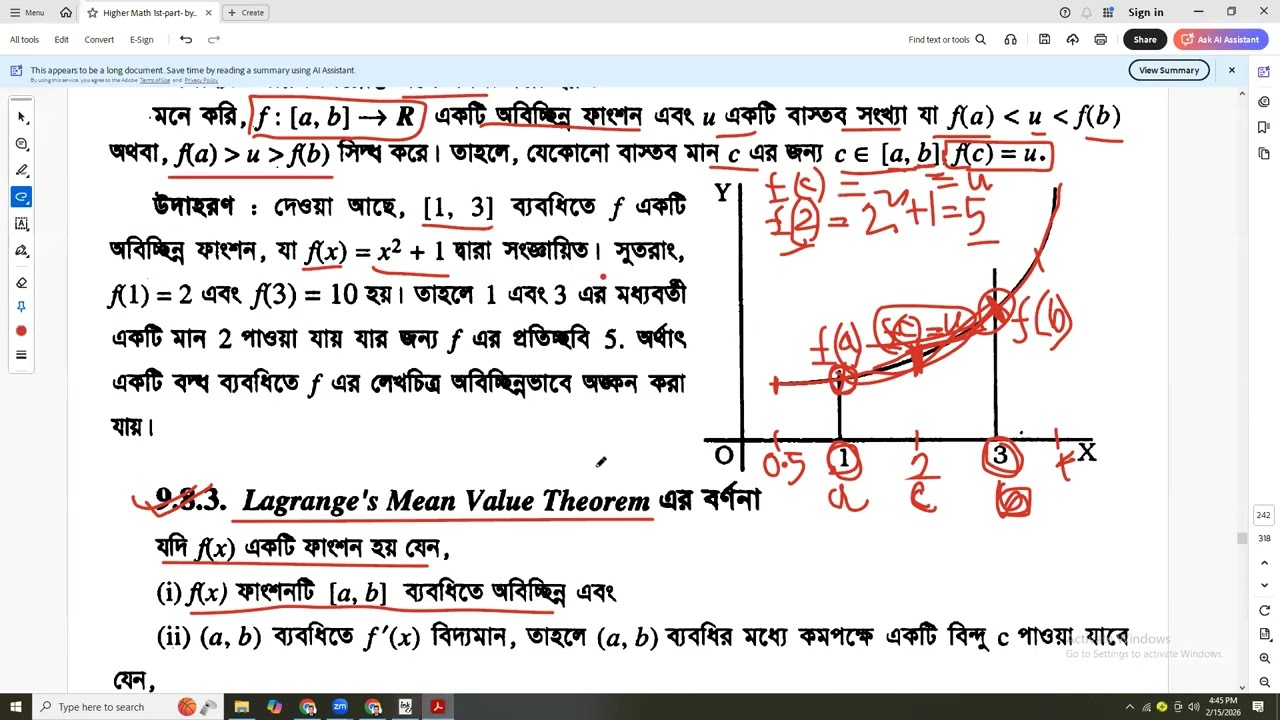 Menu Higher Math 1st-part- by... × + Create Sign in
All tools Edit Convert E-Sign Find text or tools Share Ask AI Assistant
This appears to be a long document. Save time by reading a summary using AI Assistant.
By using this service, you agree to the Adobe Terms of Use and Privacy Policy
View Summary
মনে করি, f : [a, b] → R একটি অবিচ্ছিন্ন ফাংশন এবং u একটি বাস্তব সংখ্যা যা f(a) < u < f(b)
অথবা, f(a) > u > f(b) সিদ্ধ করে। তাহলে, যেকোনো বাস্তব মান c এর জন্য c ∈ [a, b] f(c) = u.
f(c) = = u
f(2) = 2² + 1 = 5
Y
উদাহরণ : দেওয়া আছে, [1, 3] ব্যবধিতে f একটি
অবিচ্ছিন্ন ফাংশন, যা f(x) = x² + 1 দ্বারা সংজ্ঞায়িত। সুতরাং,
f(1) = 2 এবং f(3) = 10 হয়। তাহলে 1 এবং 3 এর মধ্যবর্তী
একটি মান 2 পাওয়া যায় যার জন্য f এর প্রতিচ্ছবি 5. অর্থাৎ
একটি বদ্ধ ব্যবধিতে f এর লেখচিত্র অবিচ্ছিন্নভাবে অঙ্কন করা
যায়।
f(a) f(c) = u f(b)
O 0.5 1 2 3 X
a c
9.8.3. Lagrange's Mean Value Theorem এর বর্ণনা
যদি f(x) একটি ফাংশন হয় যেন,
(i) f(x) ফাংশনটি [a, b] ব্যবধিতে অবিচ্ছিন্ন এবং
(ii) (a, b) ব্যবধিতে f′(x) বিদ্যমান, তাহলে (a, b) ব্যবধির মধ্যে কমপক্ষে একটি বিন্দু c পাওয়া যাবে
যেন,
242
318
Activate Windows
Go to Settings to activate Windows.
Type here to search
4:45 PM
2/15/2026